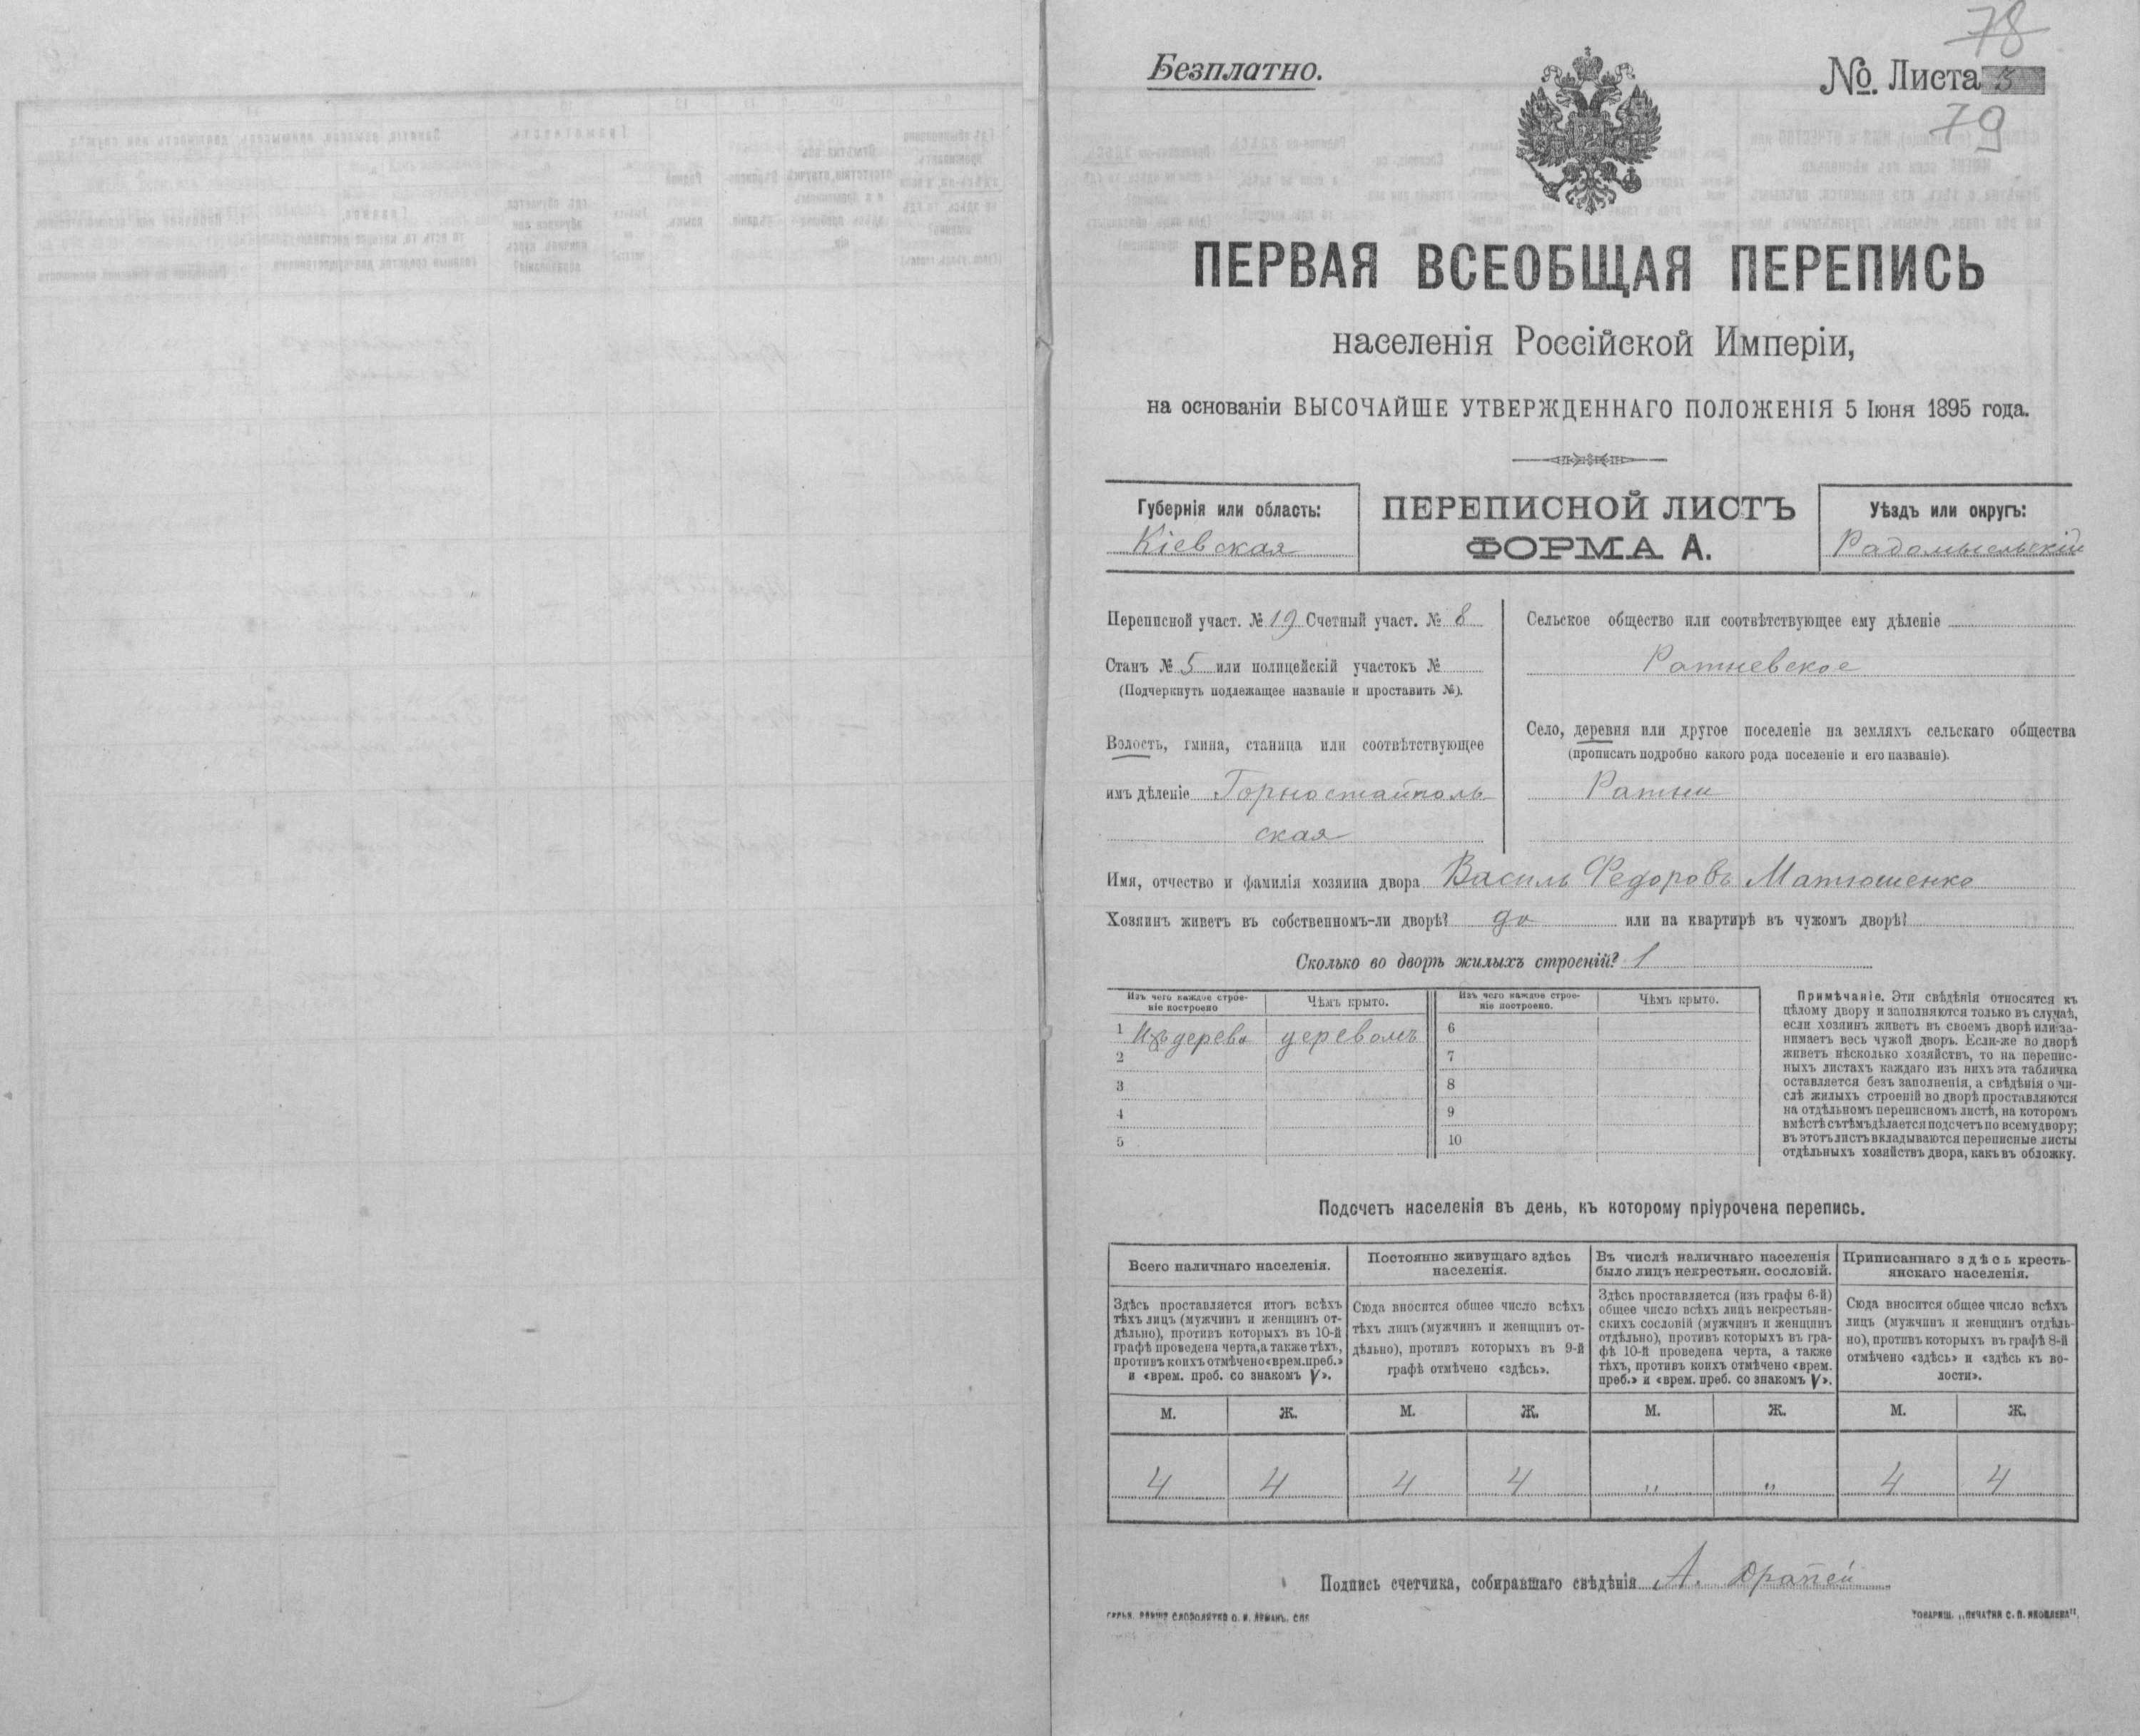 78
Безплатно.
№. Листа
79
ПЕРВАЯ ВСЕОБЩАЯ ПЕРЕПИСЬ
населенія Россійской Имперіи,
на основаніи ВЫСОЧАЙШЕ УТВЕРЖДЕННАГО ПОЛОЖЕНІЯ 5 Іюня 1895 года.
Губернія или область:
Кіевская
ПЕРЕПИСНОЙ ЛИСТЪ
ФОРМА А.
Уѣздъ или округъ:
Радомысльскій
Переписной участ. № 19 Счетный участ. № 8
Станъ № 5 или полицейскій участокъ №
(Подчеркнуть подлежащее названіе и проставить №).
Волость, гмина, станица или соотвѣтствующее
имъ дѣленіе Горностайполь
ская
Сельское общество или соотвѣтствующее ему дѣленіе
Ратневское
Село, деревня или другое поселеніе на земляхъ сельскаго общества
(прописать подробно какого рода поселеніе и его названіе).
Ратни
Имя, отчество и фамилія хозяина двора Василь Федоровъ Матюшенко
Хозяинъ живетъ въ собственномъ-ли дворѣ? да или на квартирѣ въ чужомъ дворѣ?
Сколько во дворѣ жилыхъ строеній? 1
Изъ чего каждое строе-
ніе построено
Чѣмъ крыто.
Изъ чего каждое строе-
ніе построено.
Чѣмъ крыто.
1 Изъ дерева деревомъ 6
2 7
3 8
4 9
5 10
Примѣчаніе. Эти свѣдѣнія относятся къ
цѣлому двору и заполняются только въ случаѣ,
если хозяинъ живетъ въ своемъ дворѣ или за-
нимаетъ весь чужой дворъ. Если-же во дворѣ
живетъ нѣсколько хозяйствъ, то на перепис-
ныхъ листахъ каждаго изъ нихъ эта табличка
оставляется безъ заполненія, а свѣдѣнія о чи-
слѣ жилыхъ строеній во дворѣ проставляются
на отдѣльномъ переписномъ листѣ, на которомъ
вмѣстѣ съ тѣмъ дѣлается подсчетъ по всему двору;
въ этотъ листъ вкладываются переписные листы
отдѣльныхъ хозяйствъ двора, какъ въ обложку.
Подсчетъ населенія въ день, къ которому пріурочена перепись.
Всего наличнаго населенія.
Здѣсь проставляется итогъ всѣхъ
тѣхъ лицъ (мужчинъ и женщинъ от-
дѣльно), противъ которыхъ въ 10-й
графѣ проведена черта, а также тѣхъ,
противъ коихъ отмѣчено «врем. преб.»
и «врем. преб. со знакомъ V».
Постоянно живущаго здѣсь
населенія.
Сюда вносится общее число всѣхъ
тѣхъ лицъ (мужчинъ и женщинъ от-
дѣльно), противъ которыхъ въ 9-й
графѣ отмѣчено «здѣсь».
Въ числѣ наличнаго населенія
было лицъ некрестьян. сословій.
Здѣсь проставляется (изъ графы 6-й)
общее число всѣхъ лицъ некрестьян-
скихъ сословій (мужчинъ и женщинъ
отдѣльно), противъ которыхъ въ гра-
фѣ 10-й проведена черта, а также
тѣхъ, противъ коихъ отмѣчено «врем.
преб.» и «врем. преб. со знакомъ V».
Приписаннаго здѣсь кресть-
янскаго населенія.
Сюда вносится общее число всѣхъ
лицъ (мужчинъ и женщинъ отдѣль-
но), противъ которыхъ въ графѣ 8-й
отмѣчено «здѣсь» и «здѣсь къ во-
лости».
М. Ж. М. Ж. М. Ж. М. Ж.
4 4 4 4 " " 4 4
Подпись счетчика, собиравшаго свѣдѣнія А.
ТОВАРИЩ. „ПЕЧАТНЯ С. П. ЯКОВЛЕВА".